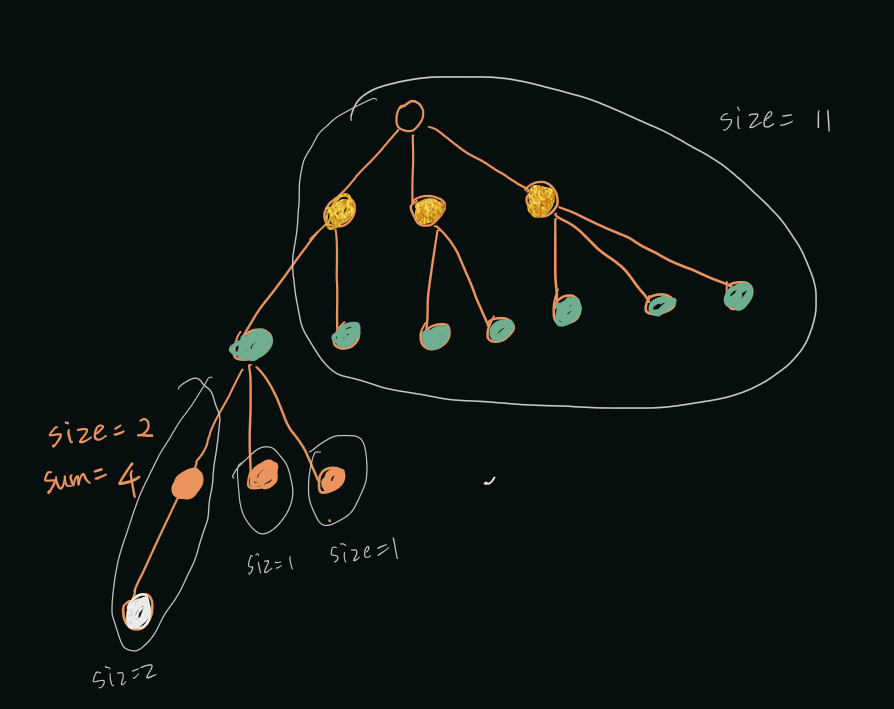 size= 11
size=2
sum=4
siz=1
size=1
siz=2